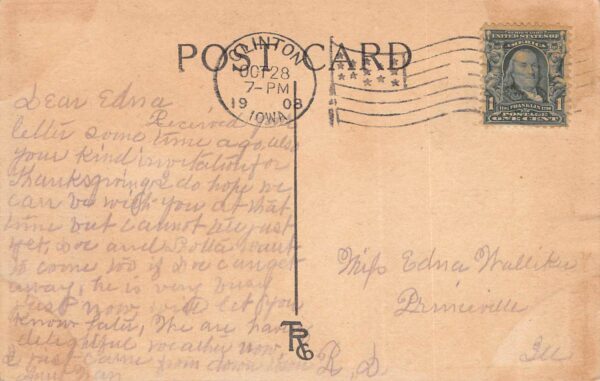 POST CARD
CLINTON
OCT 28
7-PM
1908
IOWA
UNITED STATES OF AMERICA
FRANKLIN
1 1
POSTAGE
ONE CENT
Dear Edna
Received your
letter some time ago also
your kind invitation for
Thanksgiving I do hope we
can be with you at that
time but cannot say just
yet, Doc and want
to come too if Doc can get
away, he is very busy
just now will let you
know later, We are having
delightful weather now,
I just came from down town
TRCo
Miss Edna
Princeville
R, D. Ill